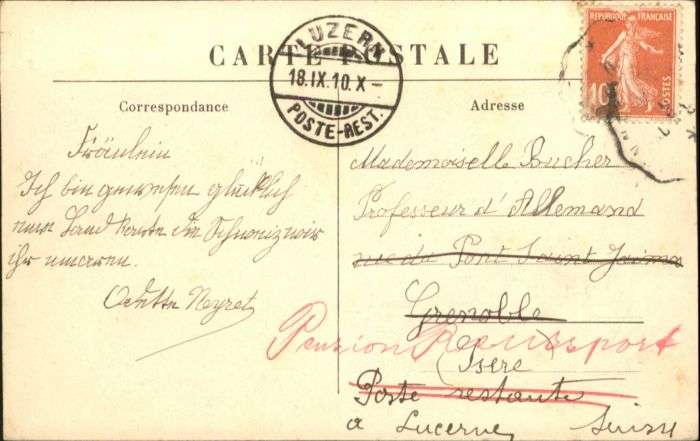 CARTE POSTALE
LUZERN
18.IX.10.X-
POSTE-REST.
RÉPUBLIQUE FRANÇAISE
10
POSTES
Correspondance
Adresse
Fräulein
Ich bin gewesen glücklich
Land Karte die Schweiz
ihr
Odette Neyret
Mademoiselle Bucher
Professeur d'Allemand
rue du Pont Saint Jaime
Grenoble
Pension
Isère
Poste restante
a Lucerne Suisse